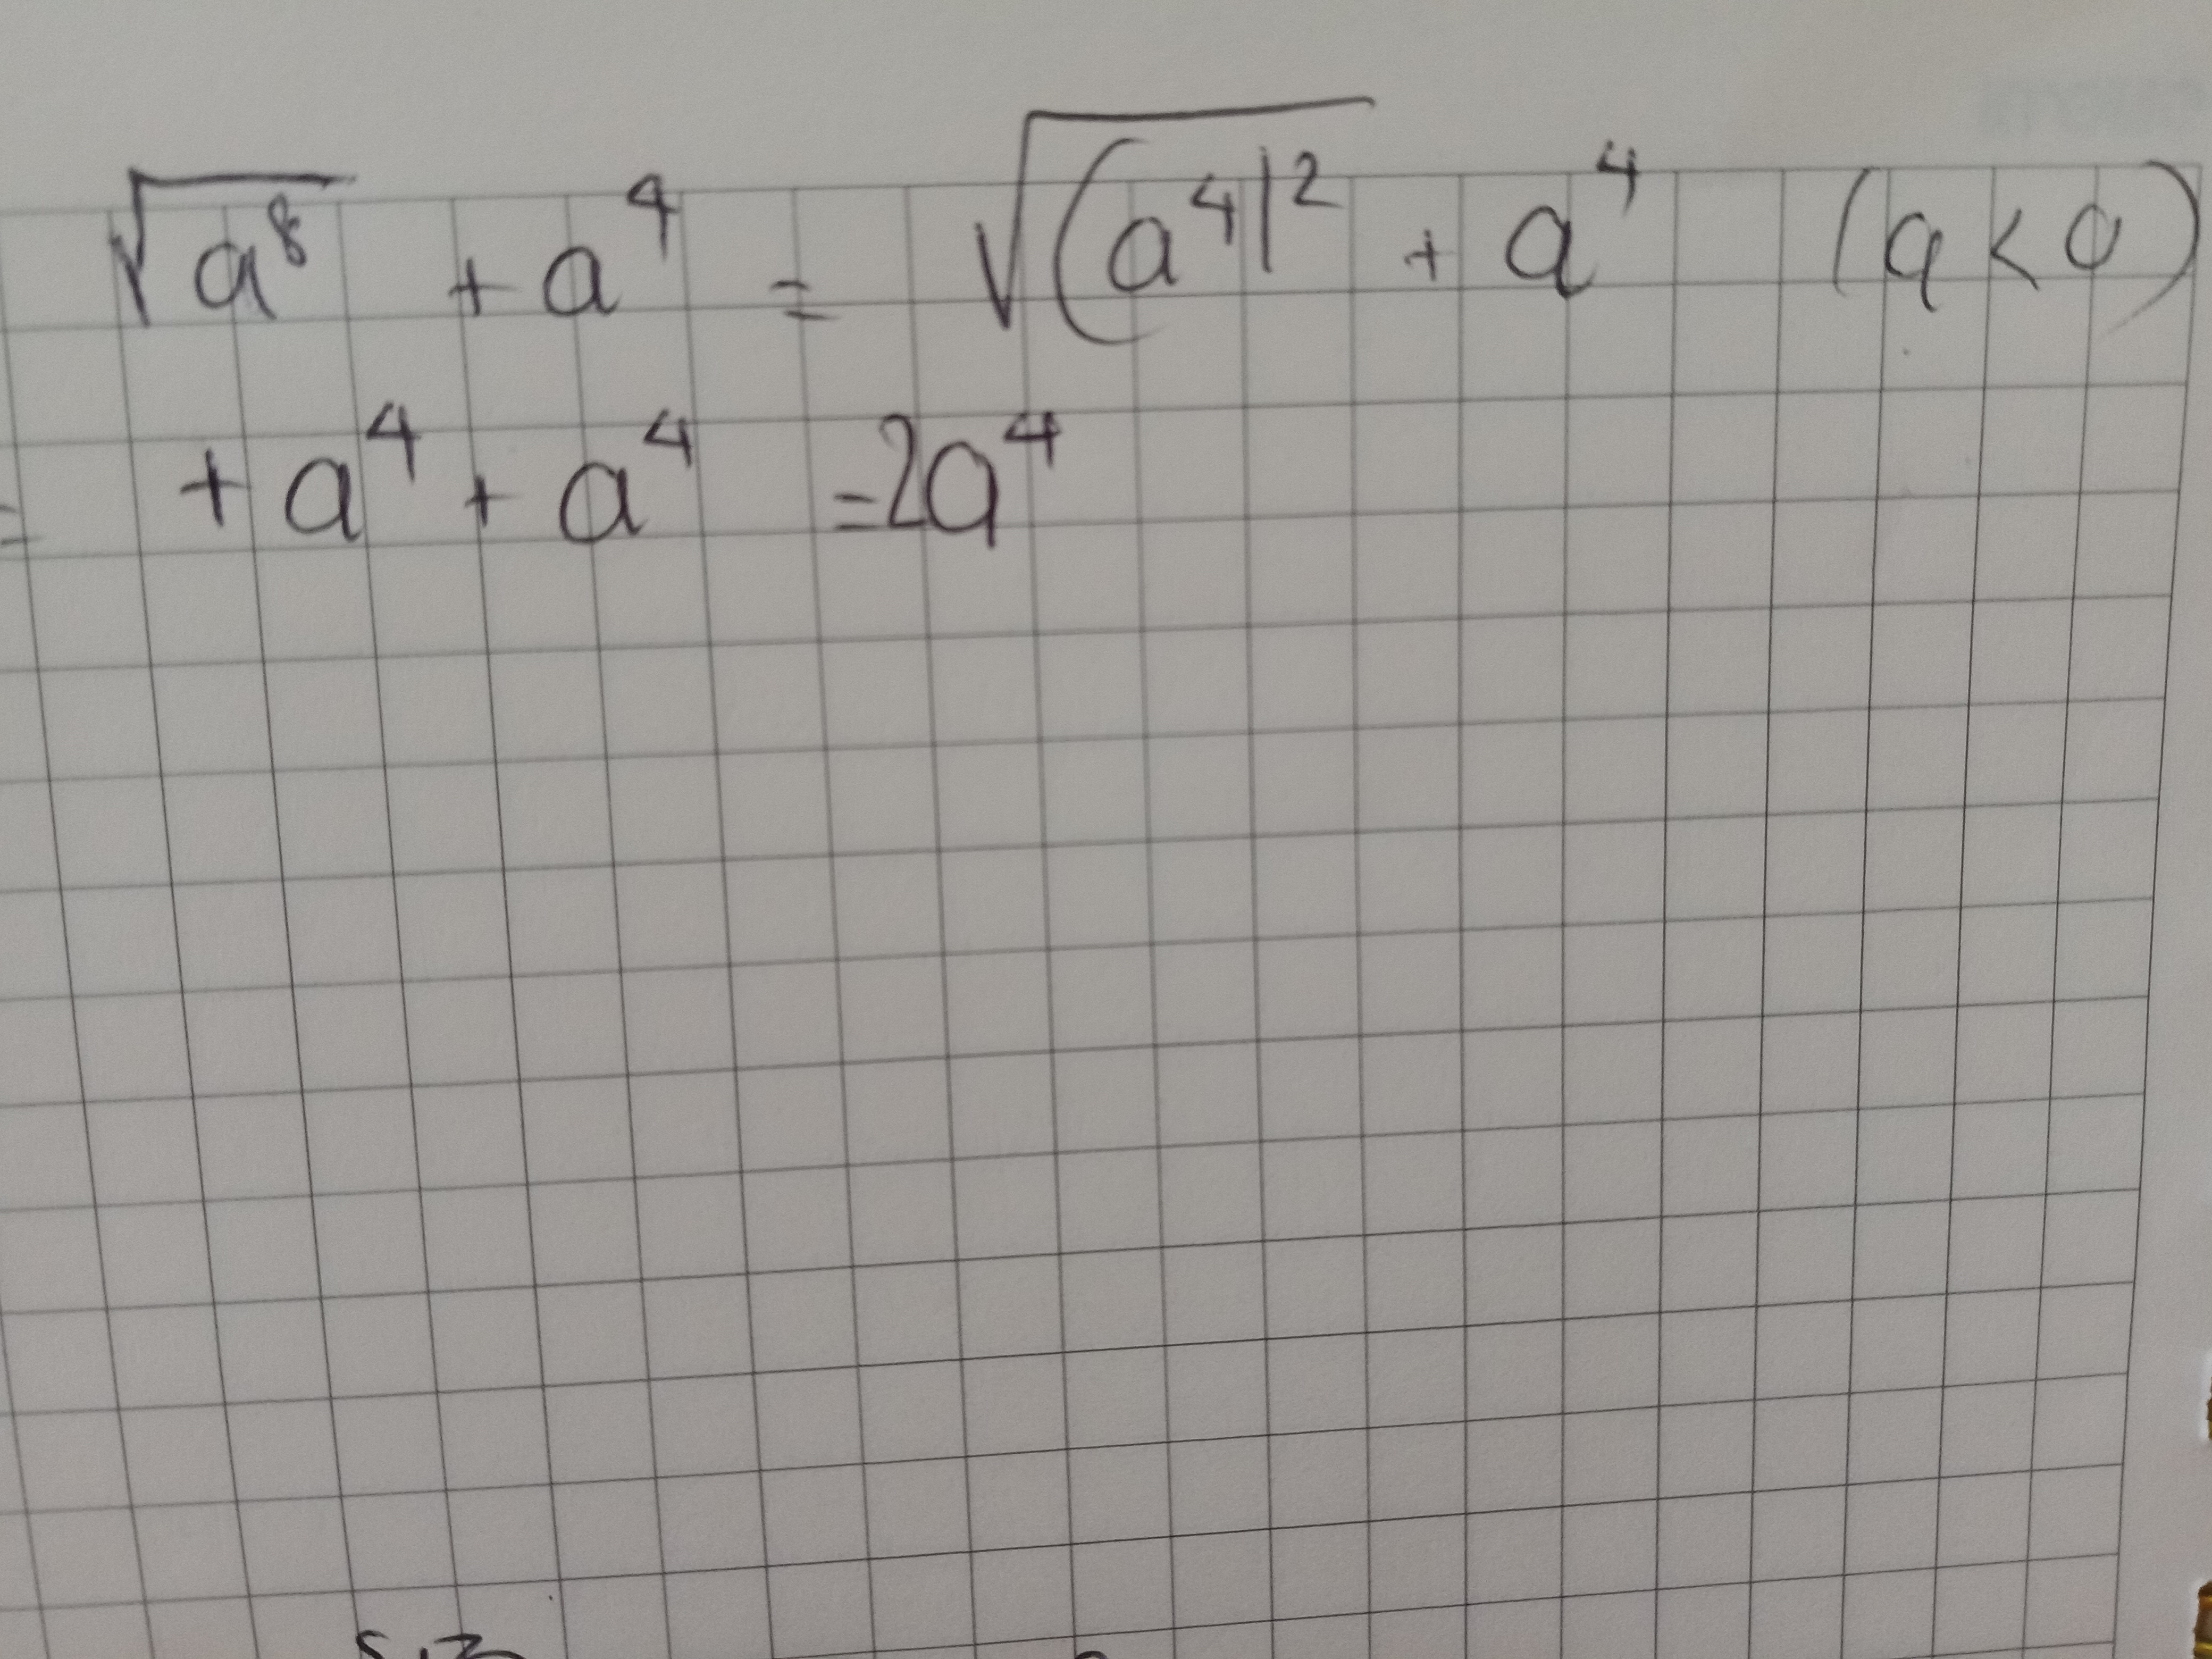 √a⁸ + a⁴ = √(a⁴)² + a⁴ (a < 0)
= + a⁴ + a⁴ = 2a⁴